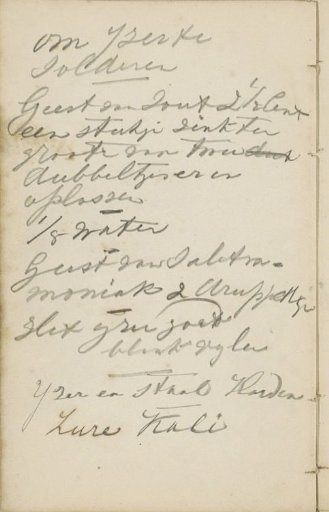 om Yzer te
Solderen
Geest van Zout 2 1/2 Cent
een stukje Zink ter
groote van twee
dubbeltjes er in
oplossen
1/8 water
Geest van Salam-
moniak 2 druppeltjes
Het yzer goed
blank vylen
Yzer en Staal Harden
Zure Kali